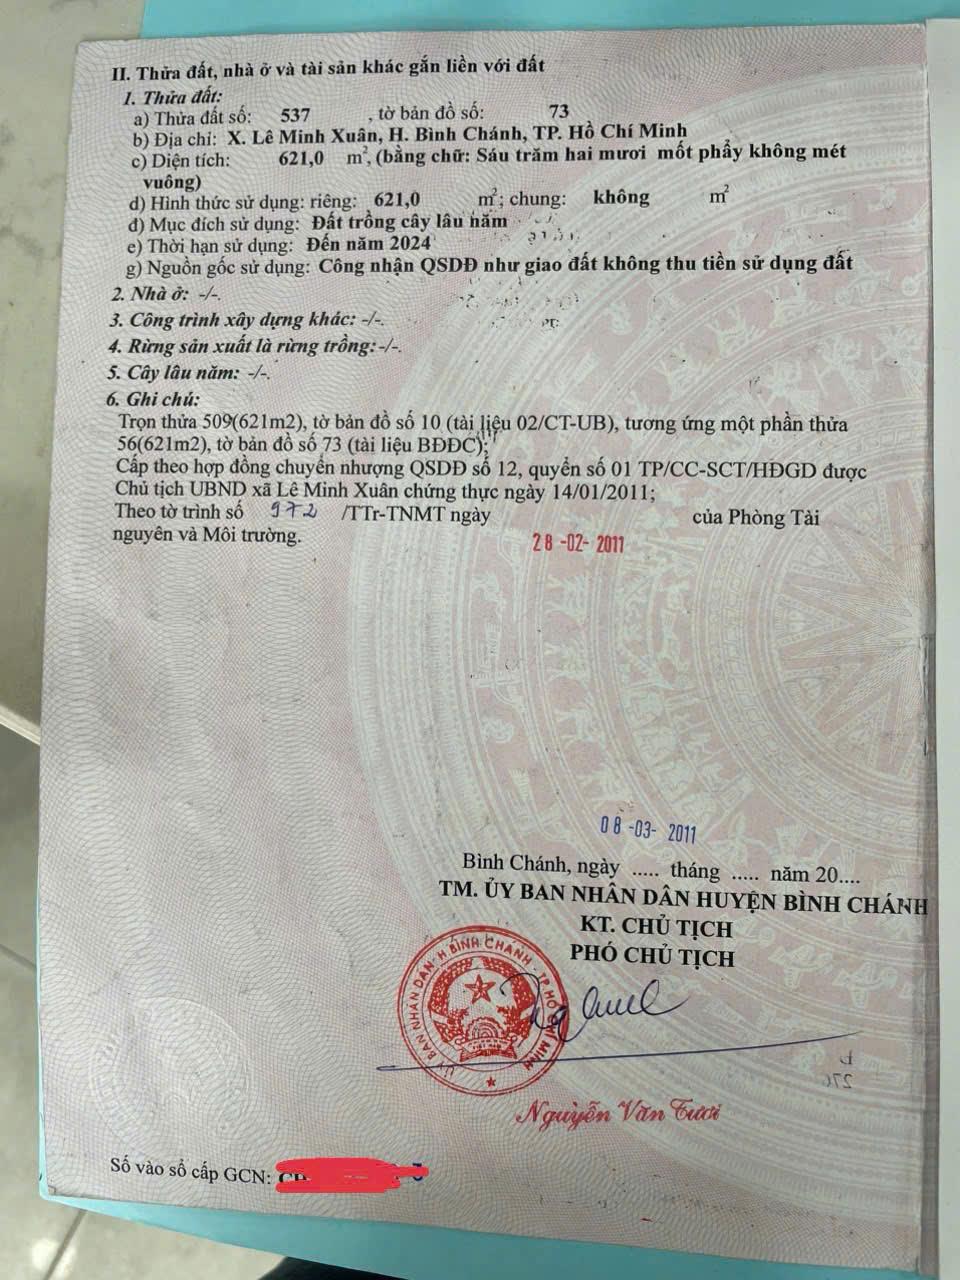 II. Thửa đất, nhà ở và tài sản khác gắn liền với đất
1. Thửa đất:
a) Thửa đất số: 537 , tờ bản đồ số: 73
b) Địa chỉ: X. Lê Minh Xuân, H. Bình Chánh, TP. Hồ Chí Minh
c) Diện tích: 621,0 m², (bằng chữ: Sáu trăm hai mươi mốt phẩy không mét
vuông)
d) Hình thức sử dụng: riêng: 621,0 m²; chung: không m²
đ) Mục đích sử dụng: Đất trồng cây lâu năm
e) Thời hạn sử dụng: Đến năm 2024
g) Nguồn gốc sử dụng: Công nhận QSDĐ như giao đất không thu tiền sử dụng đất
2. Nhà ở: -/-.
3. Công trình xây dựng khác: -/-.
4. Rừng sản xuất là rừng trồng: -/-.
5. Cây lâu năm: -/-.
6. Ghi chú:
Trọn thửa 509(621m2), tờ bản đồ số 10 (tài liệu 02/CT-UB), tương ứng một phần thửa
56(621m2), tờ bản đồ số 73 (tài liệu BĐĐC);
Cấp theo hợp đồng chuyển nhượng QSDĐ số 12, quyển số 01 TP/CC-SCT/HĐGD được
Chủ tịch UBND xã Lê Minh Xuân chứng thực ngày 14/01/2011;
Theo tờ trình số 972 /TTr-TNMT ngày của Phòng Tài
nguyên và Môi trường.
28 -02- 2011
08 -03- 2011
Bình Chánh, ngày ..... tháng ..... năm 20....
TM. ỦY BAN NHÂN DÂN HUYỆN BÌNH CHÁNH
KT. CHỦ TỊCH
PHÓ CHỦ TỊCH
ỦY BAN NHÂN DÂN H BÌNH CHÁNH - TP HỒ CHÍ MINH
Nguyễn Văn Tươi
Số vào sổ cấp GCN: